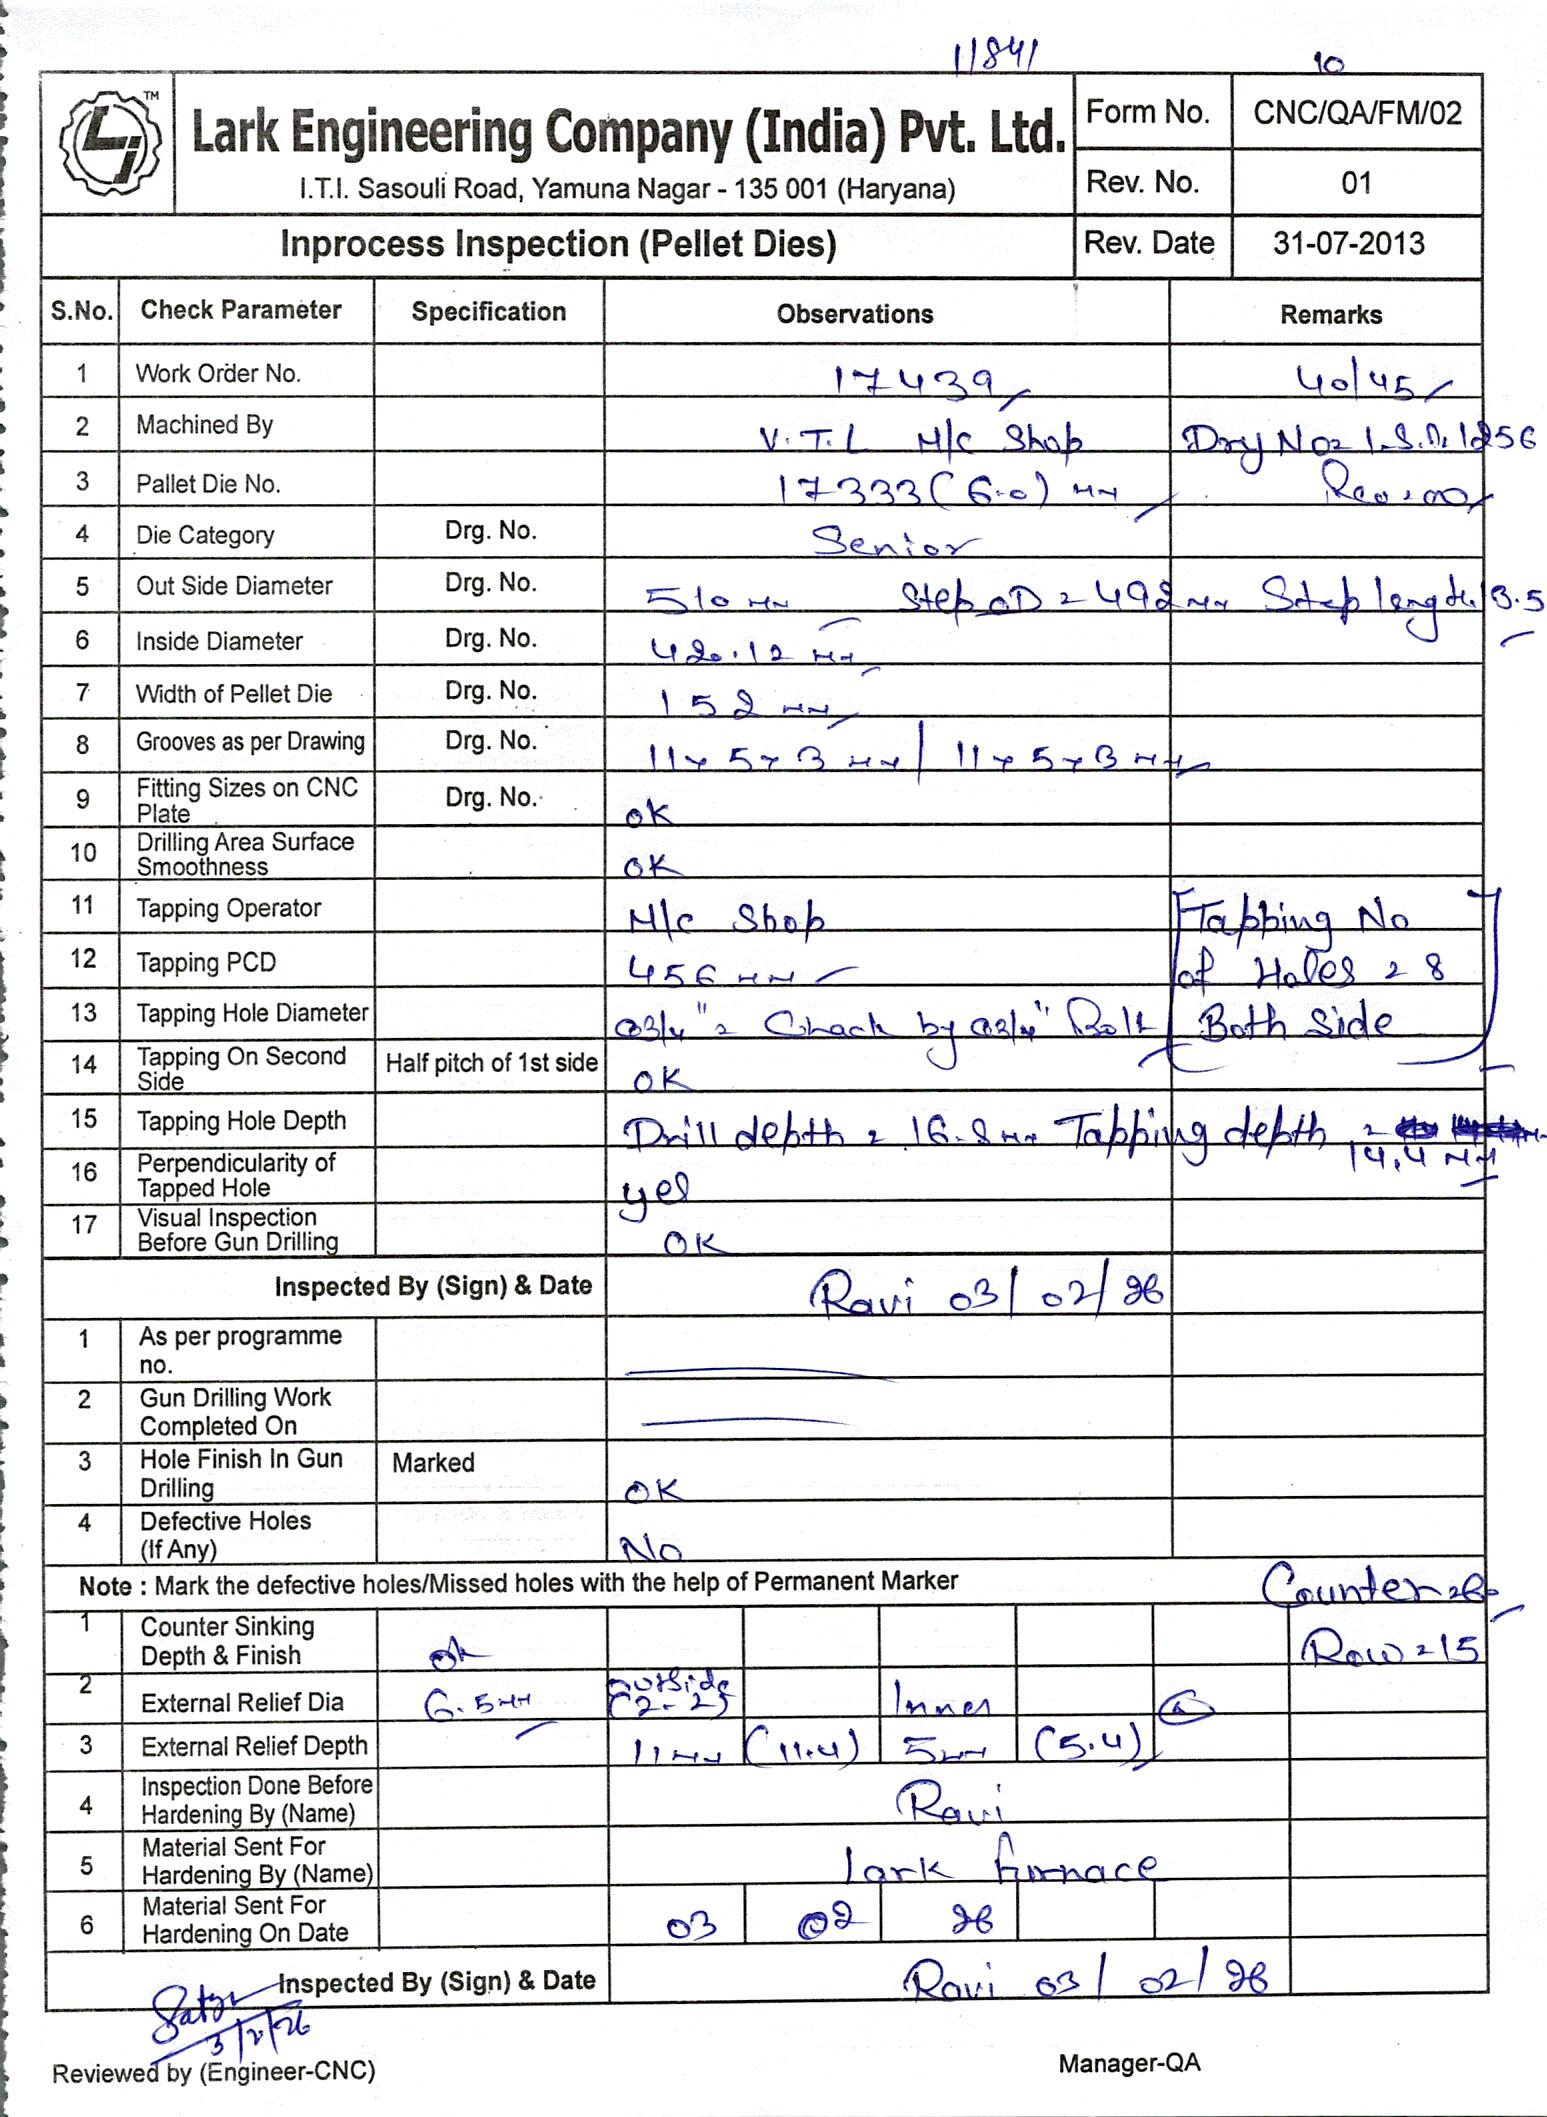 11841 10
TM
Lark Engineering Company (India) Pvt. Ltd.
I.T.I. Sasouli Road, Yamuna Nagar - 135 001 (Haryana)
Form No. CNC/QA/FM/02
Rev. No. 01
Inprocess Inspection (Pellet Dies) Rev. Date 31-07-2013
S.No. Check Parameter Specification Observations Remarks
1 Work Order No. 17439 40/45
2 Machined By V.T.L M/c Shop
3 Pallet Die No. 17333 (6.0) mm
4 Die Category Drg. No. Senior
5 Out Side Diameter Drg. No. 510 mm Step OD = 492 mm Step length 13.5
6 Inside Diameter Drg. No. 420.12 mm
7 Width of Pellet Die Drg. No. 152 mm
8 Grooves as per Drawing Drg. No. 11 x 5 x 3 mm / 11 x 5 x 3 mm
9 Fitting Sizes on CNC Plate Drg. No. OK
10 Drilling Area Surface Smoothness OK
11 Tapping Operator M/c Shop Tapping No
12 Tapping PCD 456 mm of Holes = 8
13 Tapping Hole Diameter 3/4" = Chack by 3/4" Bolt Both Side
14 Tapping On Second Side Half pitch of 1st side OK
15 Tapping Hole Depth Drill depth = 16.8 mm Tapping depth = 14.4 mm
16 Perpendicularity of Tapped Hole yes
17 Visual Inspection Before Gun Drilling OK
Inspected By (Sign) & Date Ravi 03/02/26
1 As per programme no.
2 Gun Drilling Work Completed On
3 Hole Finish In Gun Drilling Marked OK
4 Defective Holes (If Any) No
Note : Mark the defective holes/Missed holes with the help of Permanent Marker Counter
1 Counter Sinking Depth & Finish ok Row = 15
2 External Relief Dia 6.5 mm outside (2-2) Inner
3 External Relief Depth 11 mm (11.4) 5 mm (5.4)
4 Inspection Done Before Hardening By (Name) Ravi
5 Material Sent For Hardening By (Name) Lark furnace
6 Material Sent For Hardening On Date 03 02 26
Inspected By (Sign) & Date Ravi 03/02/26
3/2/26
Reviewed by (Engineer-CNC) Manager-QA